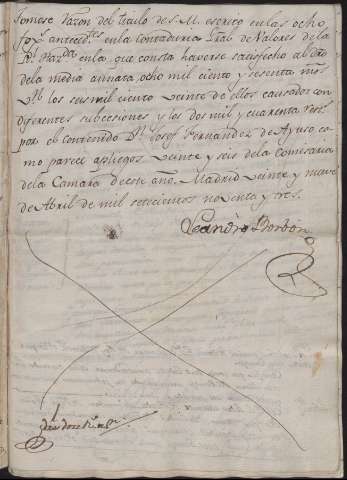 Tomose Razon del titulo de S. M. escrito en las ocho
foxs. antecedtes en la Contaduria Gral de Valores de la
Rl. Hazda en la que consta haverse satisfecho al dro
de la media annata ocho mil ciento y sesenta mrs
Vn los seis mil ciento veinte de ellos causados con
diferentes subcesiones y los dos mil y quarenta rests.
por el contenido Dn. Josef Fernandez de Ayuso, co-
mo parece a pliegos veinte y seis de la Comisaria
de la Camara de este año. Madrid veinte y nueve
de Abril de mil setecientos noventa y tres.
Leandro Borbon